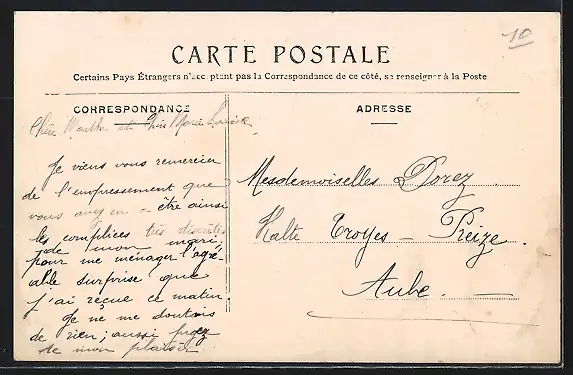 10
CARTE POSTALE
Certains Pays Étrangers n'acceptent pas la Correspondance de ce côté, se renseigner à la Poste
CORRESPONDANCE
ADRESSE
Chère Marthe et Chère Marie Louise
Je viens vous remercier
de l'empressement que
vous avez eu à être ainsi
les complices très discrètes
de mon mari,
pour me ménager l'agré-
able surprise que
j'ai reçue ce matin.
Je ne me doutais
de rien; aussi jugez
de mon plaisir
Mesdemoiselles Dorez
Halte Troyes - Preize.
Aube.